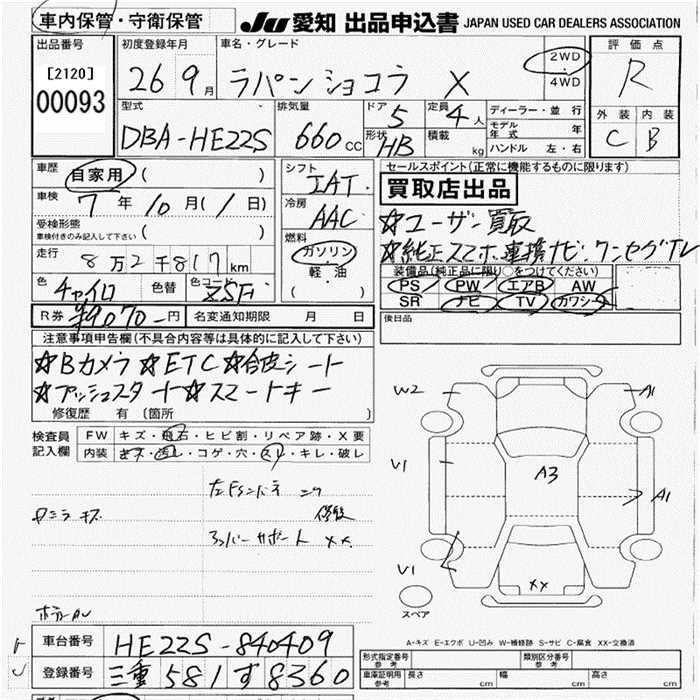 車内保管・守衛保管
JU 愛知 出品申込書 JAPAN USED CAR DEALERS ASSOCIATION
出品番号
[2120]
00093
初度登録年月
26 9月
車名・グレード
ラパン ショコラ X
2WD
・
4WD
評価点
R
外装 内装
C B
型式
DBA-HE22S
排気量
660cc
ドア 5
形状 HB
定員 4人
積載 kg
ディーラー・並行
モデル年式 年
ハンドル 左・右
車歴
自家用 ( )
車検
7年10月(1日)
受検形態
車検付きのみ記入して下さい ( )
走行
8万2千817km
色 チャイロ
色替
色コード ZSF
シフト
IAT
冷房
AAC
燃料
ガソリン
・
軽・油
( )
セールスポイント(正常に機能するものに限ります)
買取店出品
☆ユーザー買取
☆純正スマホ連携ナビ・ワンセグTV
装備品(純正品に限り○をつけてください)
PS PW エアB AW
SR ナビ TV カワシート
後日品
R券 ¥9070-円
名変通知期限 月 日
注意事項申告欄(不具合内容等は具体的に記入して下さい)
☆Bカメラ ☆ETC ☆合皮シート
☆プッシュスタート ☆スマートキー
修復歴 有 (箇所 )
検査員記入欄
FW キズ・飛石・ヒビ割・リペア跡・X要
内装 キズ・汚レ・コゲ・穴・スレ・キレ・破レ
修殴
コアサポート XX
ロミラ キズ
W2
A1
V1
A3
A1
V1
XX
スペア
A-キズ E-エクボ U-凹み W-補修跡 S-サビ C-腐食 XX-交換済
車台番号 HE22S-840409
登録番号 三重 581 す 8360
形式指定番号 参考
類別区分番号 参考
車庫証明用参考 長さ cm 幅 cm 高さ cm